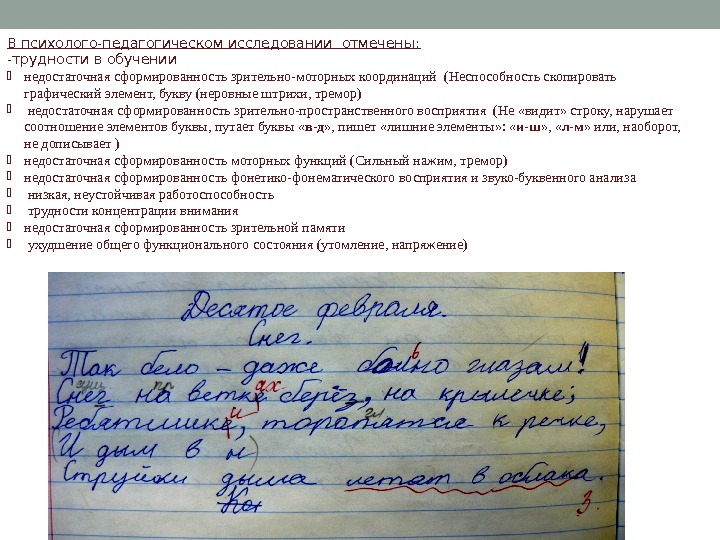 В психолого-педагогическом исследовании отмечены:
-трудности в обучении
недостаточная сформированность зрительно-моторных координаций (Неспособность скопировать
графический элемент, букву (неровные штрихи, тремор)
недостаточная сформированность зрительно-пространственного восприятия (Не «видит» строку, нарушает
соотношение элементов буквы, путает буквы «в-д», пишет «лишние элементы»: «и-ш», «л-м» или, наоборот,
не дописывает )
недостаточная сформированность моторных функций (Сильный нажим, тремор)
недостаточная сформированность фонетико-фонематического восприятия и звуко-буквенного анализа
низкая, неустойчивая работоспособность
трудности концентрации внимания
недостаточная сформированность зрительной памяти
ухудшение общего функционального состояния (утомление, напряжение)
Десятое февраля.
Снег.
ь
Так бело – даже глазам!
сущ пр ах
Снег на ветке берёз, на крылечке;
и гл
Ребятишке, торапятся к речке,
(И дым в н)
Струйки дыма летат в облака.
3.